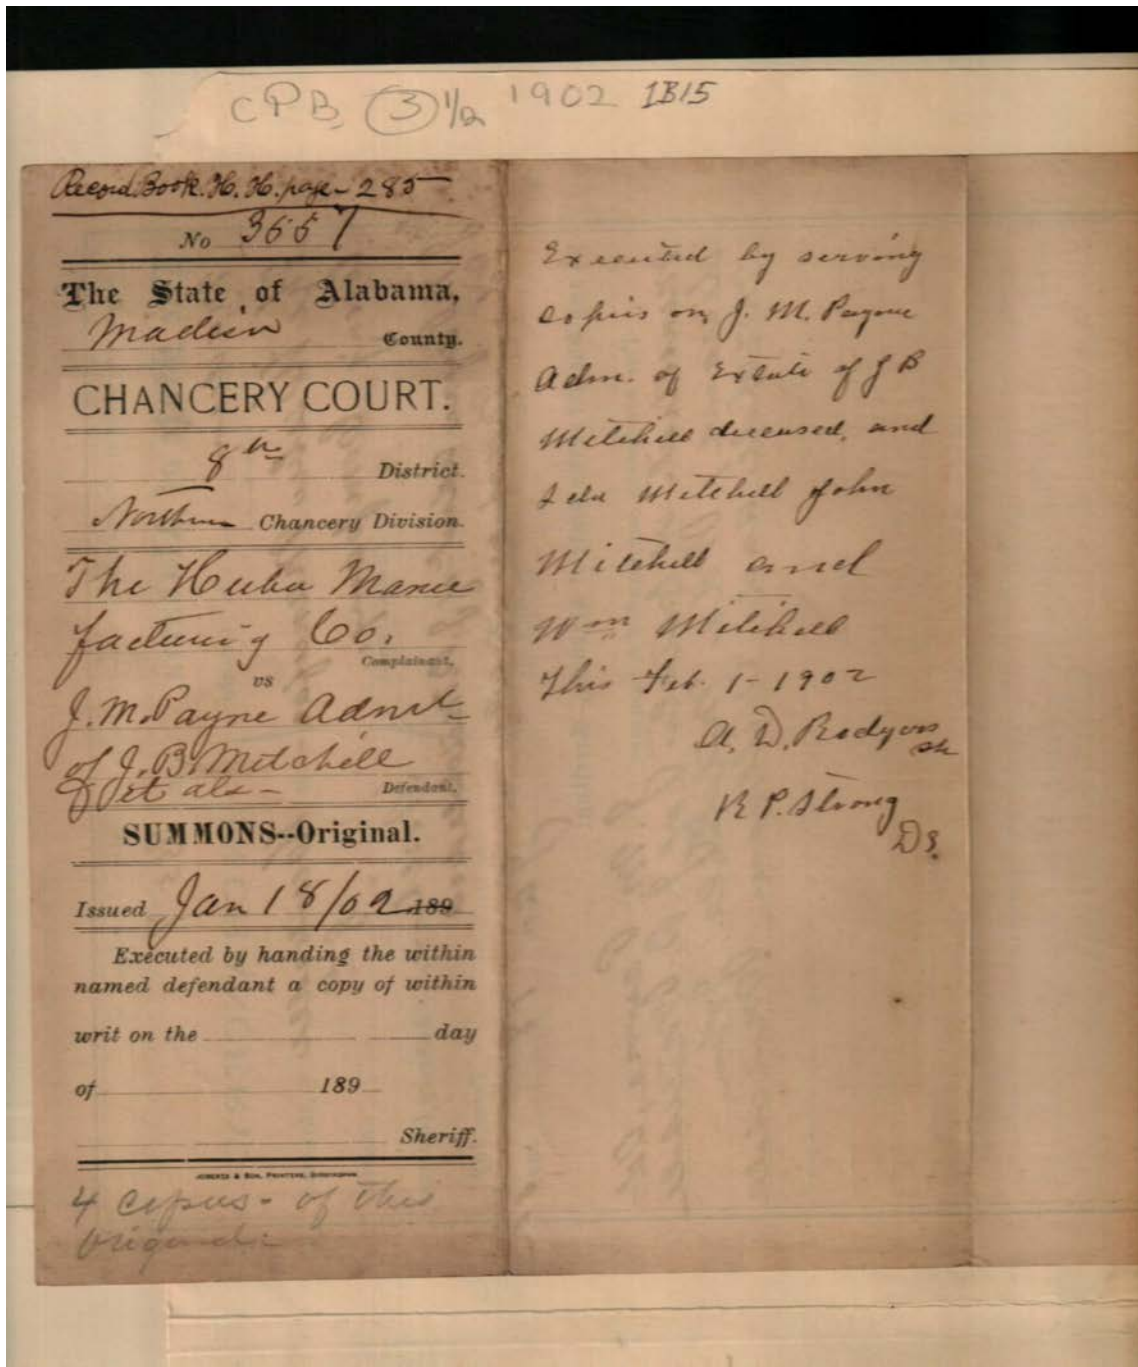 CPB 3 1/2 1902 1B15
Record Book. H. H. page - 285
No 3657
The State of Alabama,
Madison County.
CHANCERY COURT.
8th District.
Northern Chancery Division.
The Huba Manu
facturing Co.
Complainant.
vs
J. M. Payne Admr
of J. B. Mitchell
et als -
Defendant.
SUMMONS--Original.
Issued Jan 18/02 189
Executed by handing the within
named defendant a copy of within
writ on the day
of 189
Sheriff.
ROBERTS & SON, PRINTERS, BIRMINGHAM
4 copies - of this
Original -
Executed by serving
copies on J. M. Payne
Adm. of Estate of J B
Mitchell deceased, and
Ida Mitchell John
Mitchell and
Wm Mitchell
This Feb. 1 - 1902
A. D. Rodgers
Sh
R P. Strong
D S.